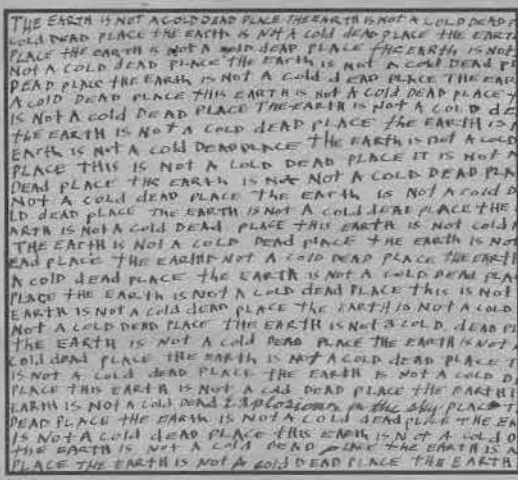 THE EARTH IS NOT A COLD DEAD PLACE THE EARTH IS NOT A COLD DEAD P
COLD DEAD PLACE THE EARTH IS NOT A COLD dEAD PLACE THE EARTH
PLACE THE EARTH IS NOT A COLD DEAD PLACE tHE EARTH IS NOT
NOT A COLD DEAD PLACE THE EARTH IS NOT A COLD DEAD PL
DEAD PLACE tHE EARth IS NOT A COLD d EAD PLACE THE EAR
A COLD DEAD PLACE THIS EARTH IS NOt A COLD DEAD PLACE
IS NOt A COLD DEAD PLACE THE EARTH IS NOt A COLD DE
tHE EARTH IS NOt A COLD dEAD PLACE tHE EARTH IS
EARth IS NOT A COLD DEAD PLACE THE EARTH IS NOT A COLD
PLACE THIS IS NOT A COLD DEAD PLACE IT IS NOT A
DEAD PLACE THE EARTH IS NOt NOT A COLD DEAD PLA
NOT A COLD dEAD PLACE THE EARTH IS NOT A COLD D
LD DEAD PLACE THE EARTH IS NOT A COLD dEAD PLACE THE
ARTH IS NOt A COLD DEAD PLACE THIS EARTH IS NOT COLD
THE EARTH IS NOt A COLD DEAD PLACE tHE EARTH IS NOT
EAD PLACE THE EARTH NOT A COLD DEAD PLACE THE EARTH
A COLD dEAD PLACE tHE EARTH IS NOT A COLD DEAD PLA
PLACE tHE EARTH IS NOT A COLD DEAD PLACE THIS IS NOT
EARTH IS NOt A COLD dEAD PLACE THE EARTH IS NOt A COLD
NOt A COLD DEAD PLACE THE EARTH IS NOt A COLD dEAD PL
THE EARTH IS NOT A COLD DEAD PLACE THE EARTH IS NOT A
COLD dEAD PLACE THE EARTH IS NOT A COLD dEAD PLACE T
IS NOT A COLD DEAD PLACE tHE EARTH IS NOT A COLD D
PLACE THIS EARTH IS NOT A COLD DEAD PLACE tHE EARTH I
EARTH IS NOt A COLD DEAD Explosions in the sky PLACE
DEAD PLACE THE EARTH IS NOT A COLD dEAD PLACE THE EA
IS NOt A COLD dEAD PLACE tHIS EARTH IS NOT A COLD D
tHE EARTH IS NOT A COLD DEAD PLACE tHE EARTH IS A
PLACE THE EARTH IS NOT A COLD DEAD PLACE THE EARTH